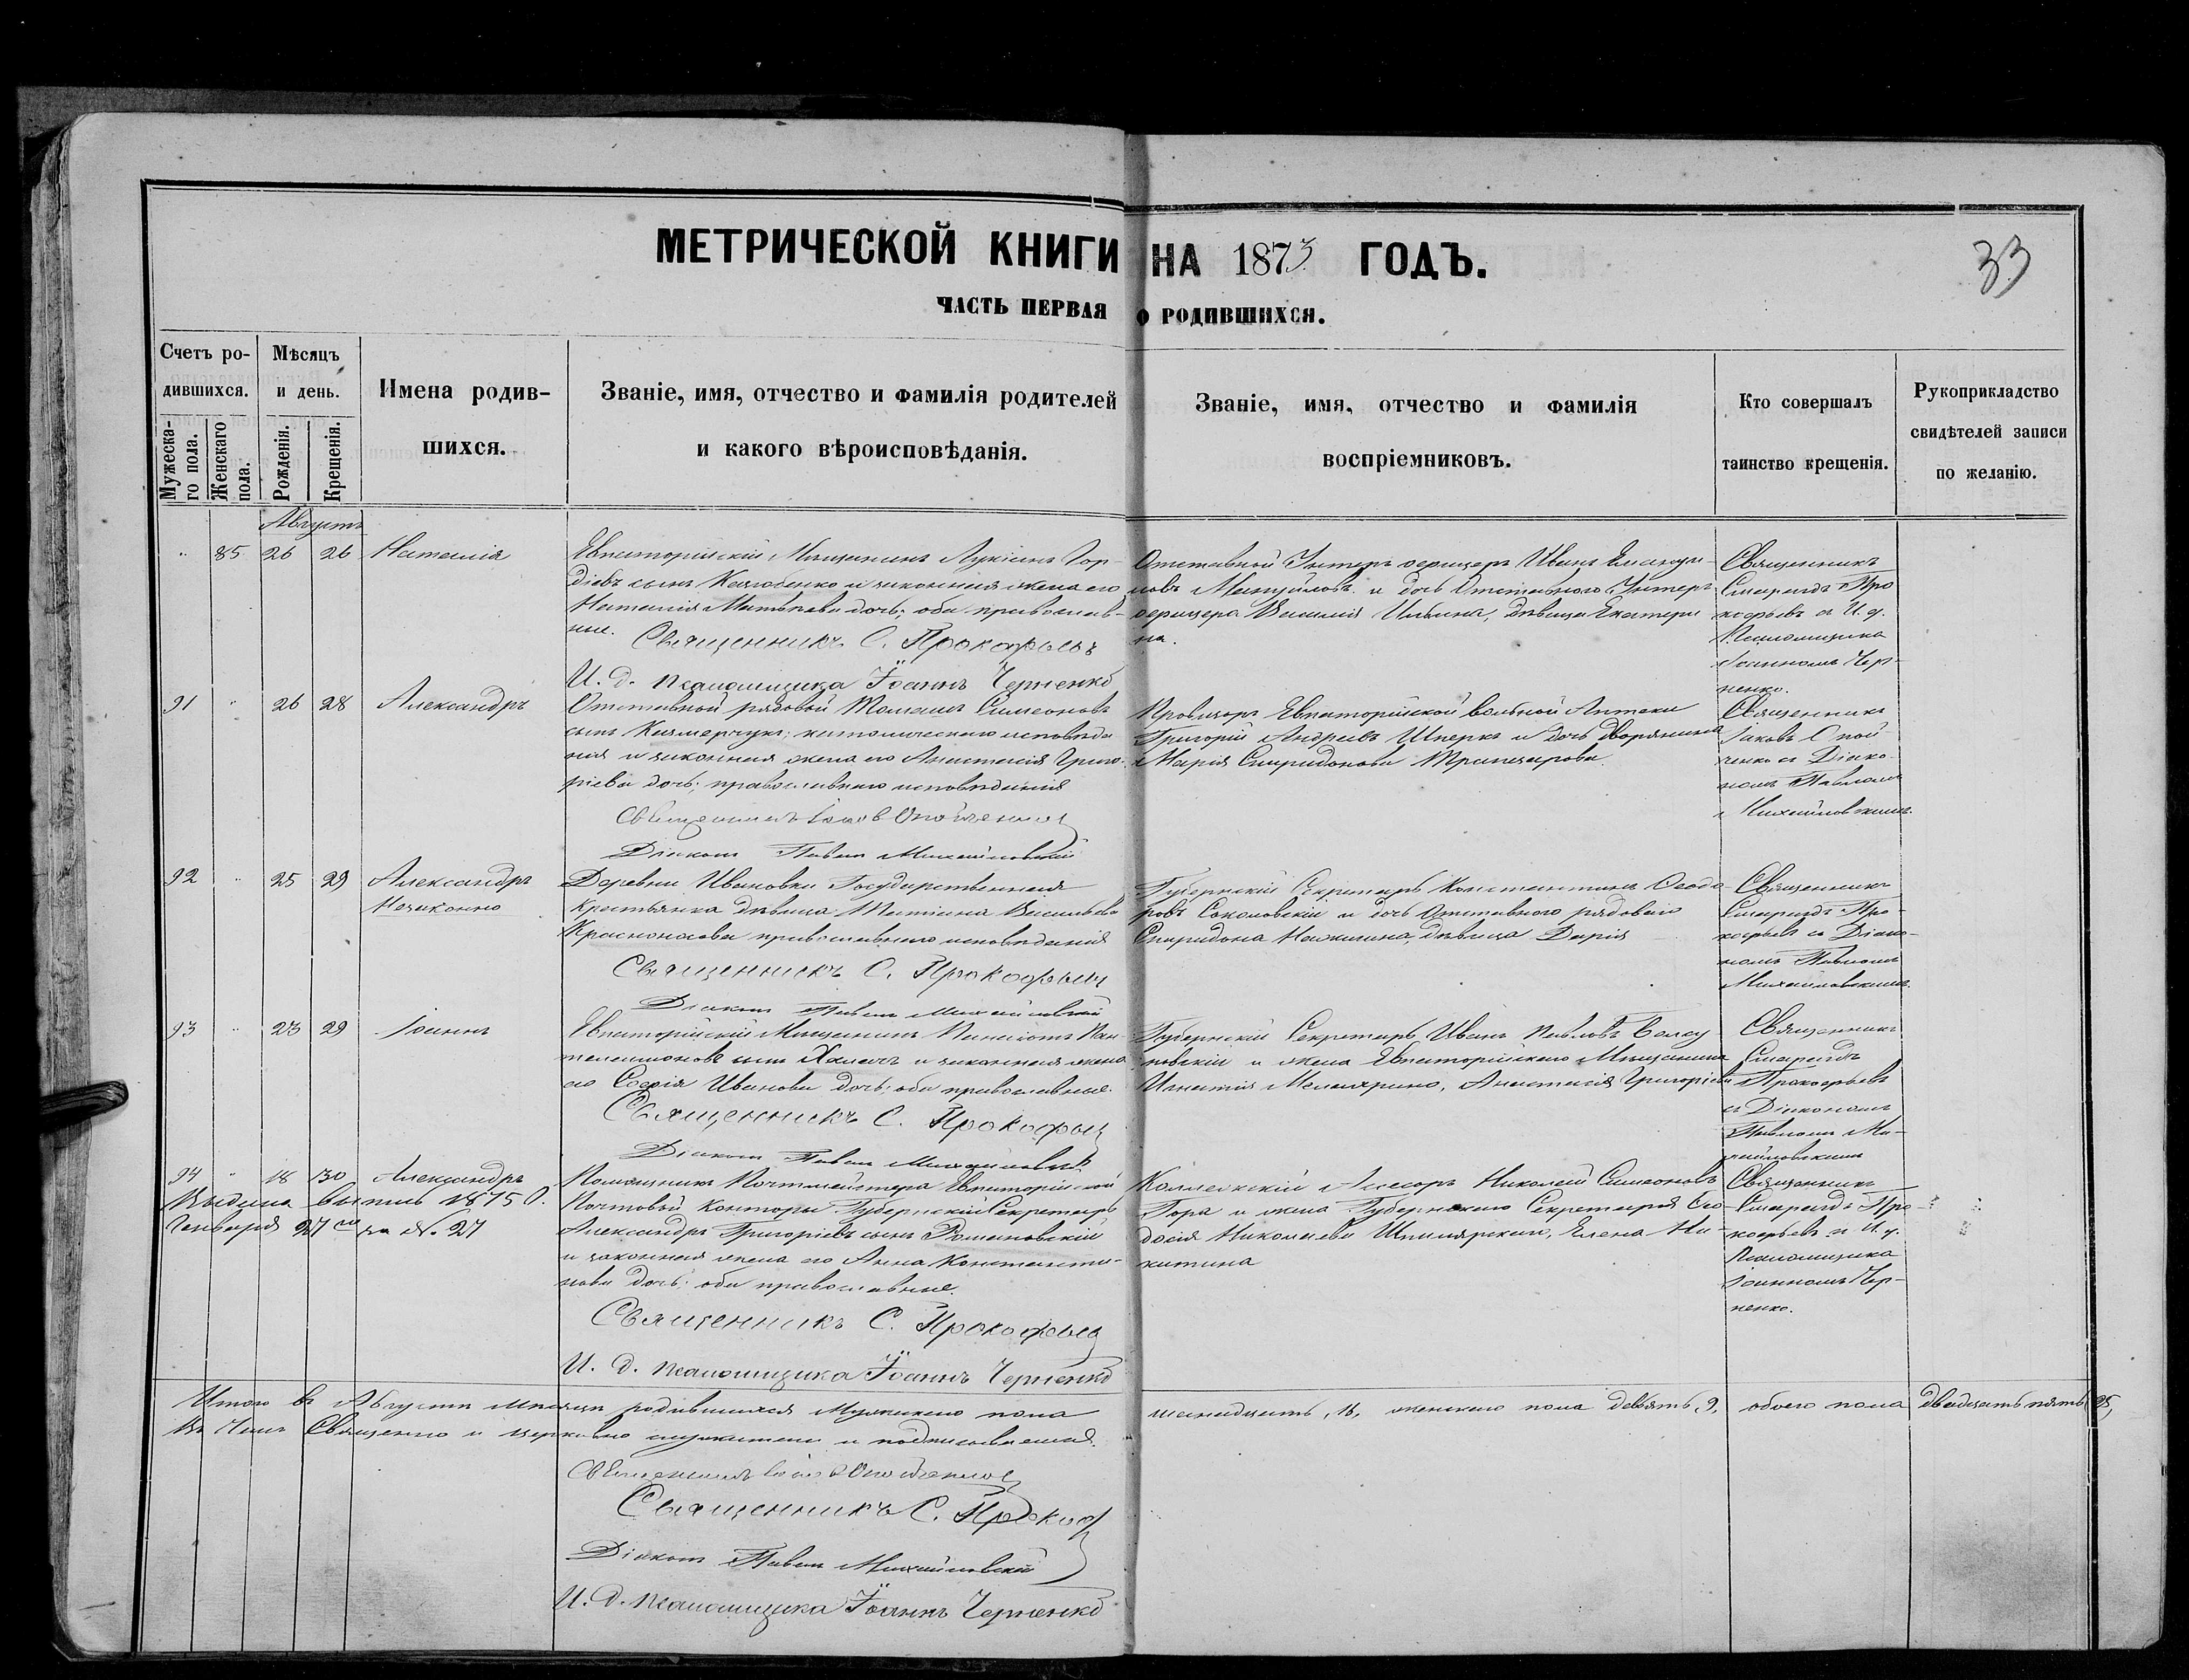 МЕТРИЧЕСКОЙ КНИГИ НА 1873 ГОДЪ.
33
ЧАСТЬ ПЕРВАЯ О РОДИВШИХСЯ.
Счетъ ро-
дившихся.
Мужеска-
го пола.
Женскаго
пола.
Мѣсяцъ
и день.
Рожденія.
Крещенія.
Имена родив-
шихся.
Званіе, имя, отчество и фамилія родителей
и какого вѣроисповѣданія.
Званіе, имя, отчество и фамилія
воспріемниковъ.
Кто совершалъ
таинство крещенія.
Рукоприкладство
свидѣтелей записи
по желанію.
Августъ
" 85 26 26 Наталія
Евпаторійскій Мѣщанинъ Лукіанъ Гор-
діевъ сынъ и законная жена его
Наталія Матвѣева дочь; оба православ-
ные.
Священникъ С. Прокофьевъ
И. д. псаломщика Іоаннъ Черненко
Отставной Унтеръ офицеръ Иванъ
и дочь Отставного Унтеръ
офицера Василія Ильина, дѣвица Екатери
на.
Священникъ
Смарагдъ Про
кофьевъ съ И. д.
Псаломщика
Іоанномъ Чер-
ненко.
91 " 26 28 Александръ
Отставной рядовой Томашъ Симеоновъ
сынъ католическаго исповѣда
нія и законная жена его Анастасія Григо-
ріева дочь; православнаго исповѣданія
Священникъ Іаковъ Опойченко
Діаконъ Павелъ Михайловскій
Провизоръ Евпаторійской вольной Аптеки
Григорій Андреевъ и дочь дворянина
Марія Спиридонова
Священникъ
Іаковъ Опой
ченко съ Діако-
номъ Павломъ
Михайловскимъ.
92 " 25 29 Александръ
Незаконно
Деревни Ивановки Государственная
Крестьянка дѣвица Татіана Васильева
православнаго исповѣданія
Священникъ С. Прокофьевъ
Діаконъ Павелъ Михайловскій
Губернскій Секретарь Константинъ Ѳеодо-
ровъ Соколовскій и дочь Отставного рядового
Спиридона дѣвица Дарія
Священникъ
Смарагдъ Про-
кофьевъ съ Діако-
номъ Павломъ
Михайловскимъ.
93 " 23 29 Іоаннъ
Евпаторійскій Мѣщанинъ Пан-
телеимоновъ сынъ и законная жена
его Софія Иванова дочь; оба православные.
Священникъ С. Прокофьевъ
Діаконъ Павелъ Михайловскій
Губернскій Секретарь Иванъ Павловъ
и жена Евпаторійскаго Мѣщанина
Игнатія Анастасія Григоріева
Священникъ
Смарагдъ
Прокофьевъ
съ Діакономъ
Павломъ Ми-
хайловскимъ
94 " 18 30 Александръ
Выдана выпись 1875 г.
Генваря 27го за № 27
Помощникъ Почтмейстера Евпаторійской
Почтовой Конторы Губернскій Секретарь
Александръ Григоріевъ сынъ Романовскій
и законная жена его Анна Константи-
нова дочь; оба православные.
Священникъ С. Прокофьевъ
И. д. псаломщика Іоаннъ Черненко
Коллежскій Ассесоръ Николай Симеоновъ
Гора и жена Губернскаго Секретаря Ѳео-
досія Николаева Елена Ни-
китина
Священникъ
Смарагдъ Про-
кофьевъ съ И. д.
Псаломщика
Іоанномъ Чер-
ненко.
Итого въ Августѣ мѣсяцѣ родившихся Мужескаго пола шестнадцать, 16, женскаго пола девять, 9, обоего пола двадцать пять, 25,
Въ чемъ Священно и церковно служители и подписываемся.
Священникъ Іаковъ Опойченко
Священникъ С. Прокоф
Діаконъ Павелъ Михайловскій
И. д. псаломщика Іоаннъ Черненко